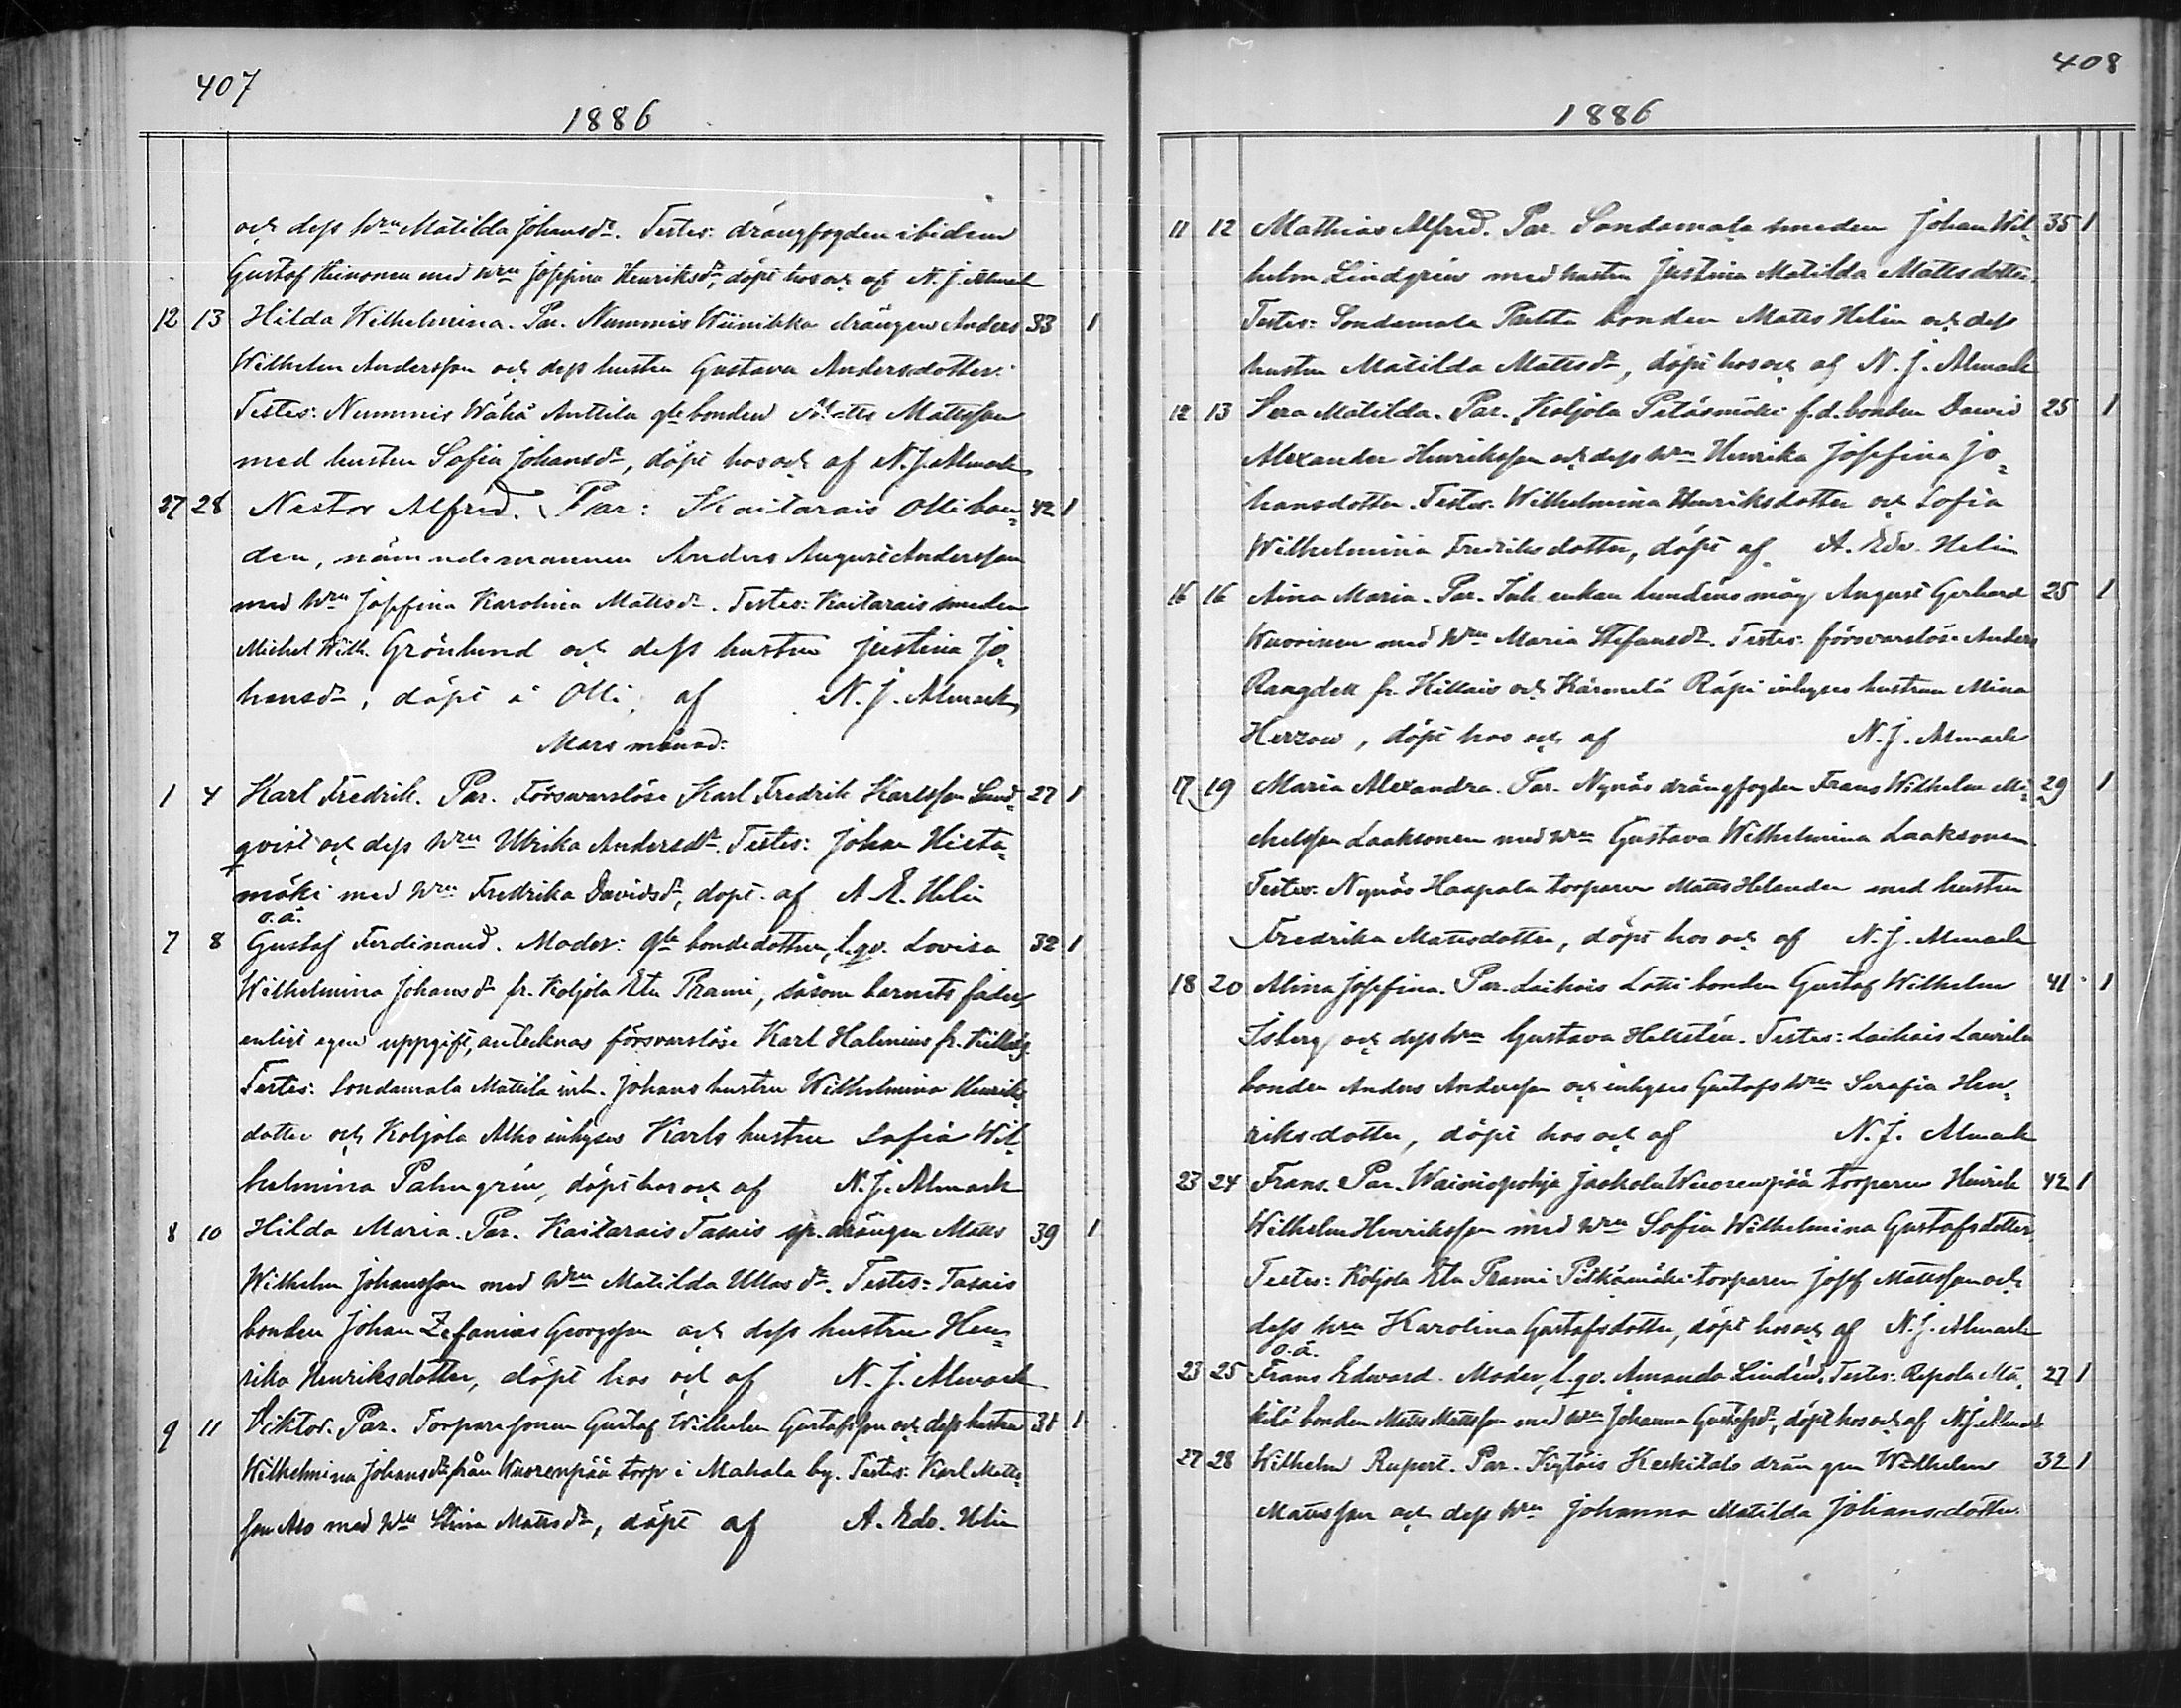 407
1886
och dess hru Matilda Johansdr. Testes: drängfogden ibidem
Gustaf Heinonen med hru Josefina Henriksdr, döpt hos och af N. J. Almark
12 13 Hilda Wilhelmina. Par. Nummis Wiinikka drängen Anders 33 1
Wilhelm Andersson och dess hustru Gustava Andersdotter.
Testes: Nummis Wähä Anttila gle bonden Matts Mattsson
med hustru Sofia Johansdr, döpt hos och af N. J. Almark
27 28 Nestor Alfred. Par: Kaitarais Olli bon- 42 1
den, nämndemannen Anders August Andersson
med hru Josefina Karolina Mattsdr. Testes: Kaitarais smeden
Michel Wilh. Grönlund och dess hustru Justina Jo-
hansdr, döpt å Olli, af N. J. Almark
Mars månad:
1 4 Karl Fredrik. Par. Försvarslöse Karl Fredrik Karlsson Lind- 27 1
qvist och dess hru Ulrika Andersdr. Testes: Johan Hieta-
mäki med hru Fredrika Davidsdr, döpt af A. E. Helin
o.ä.
7 8 Gustaf Ferdinand. Moder: gle bondedottern, l. qv. Lovisa 32 1
Wilhelmina Johansdr fr. Koljola Etu Prami, såsom barnets fader,
enligt egen uppgift, antecknas försvarslöse Karl Halenius fr.
Testes: Sondamala Mattila inh. Johans hustru Wilhelmina Henriks-
dotter och Koljola Alho inhyses Karls hustru Sofia Wil-
helmina Palmgrén, döpt hos och af N. J. Almark
8 10 Hilda Maria. Par. Kaitarais Tasais sp. drängen Matts 39 1
Wilhelm Johansson med hru Matilda Ullasdr. Testes: Tasais
bonden Johan Zefanias Georgsson och dess hustru Hen-
rika Henriksdotter, döpt hos och af N. J. Almark
9 11 Viktor. Par. Torparesonen Gustaf Wilhelm Gustafsson och dess hustru 31 1
Wilhelmina Johansdr från Wuorenpää torp i Mahala by. Testes: Karl Matts-
son Alo med hru Stina Mattsdr, döpt af A. Edv. Helin
408
1886
11 12 Mathias Alfred. Par. Sondamala smeden Johan Wil- 35 1
helm Lindgrén med hustru Justina Matilda Mattsdotter.
Testes: Sondamala Pietta bonden Matts Helin och dess
hustru Matilda Mattsdr, döpt hos och af N. J. Almark
12 13 Vera Matilda. Par. Koljola Pitäsmäki f.d. bonden David 25 1
Alexander Henriksson och dess hru Henrika Josefina Jo-
hansdotter. Testes. Wilhelmina Henriksdotter och Sofia
Wilhelmina Fredriksdotter, döpt af A. Edv. Helin
16 16 Aina Maria. Par. Inh. enkan Lundéns måg August Gerhard 25 1
Wuorinen med hru Maria Stefansdr. Testes: försvarslöse Anders
Rangdell fr. Killais och Kärmelä Räpi inhyses hustrun Mina
Herzow, döpt hos och af N. J. Almark
17 19 Maria Alexandra. Par. Nynäs drängfogden Frans Wilhelm Mi- 29 1
chelsson Laaksonen med hru Gustava Wilhelmina Laaksonen.
Testes: Nynäs Haapala torparen Matts Helander med hustru
Fredrika Mattsdotter, döpt hos och af N. J. Almark
18 20 Alina Josefina. Par. Laihois Lotti bonden Gustaf Wilhelm 41 1
Isberg och dess hru Gustava Hellstén. Testes: Laihois Laurila
bonden Anders Andersson och inhyses Gustafs hru Serafia Hen-
riksdotter, döpt hos och af N. J. Almark
23 24 Frans. Par. Wainiopohja Jaakola Wuorenpää torparen Henrik 42 1
Wilhelm Henriksson med hru Sofia Wilhelmina Gustafsdotter.
Testes: Koljola Etu Prami Pitkämäki torparen Josef Mattsson och
dess hru Karolina Gustafsdotter, döpt hos och af N. J. Almark
o.ä.
23 25 Frans Edward. Moder, l. qv. Amanda Lindén. Testes: Repola Mä-
kilä bonden Matts Mattsson med hru Johanna Gustafsdr, döpt hos och af N. J. Almark 27 1
27 28 Wilhelm Rupert. Par. Kytöis Keskitalo drängen Wilhelm 32 1
Mattsson och dess hru Johanna Matilda Johansdotter.